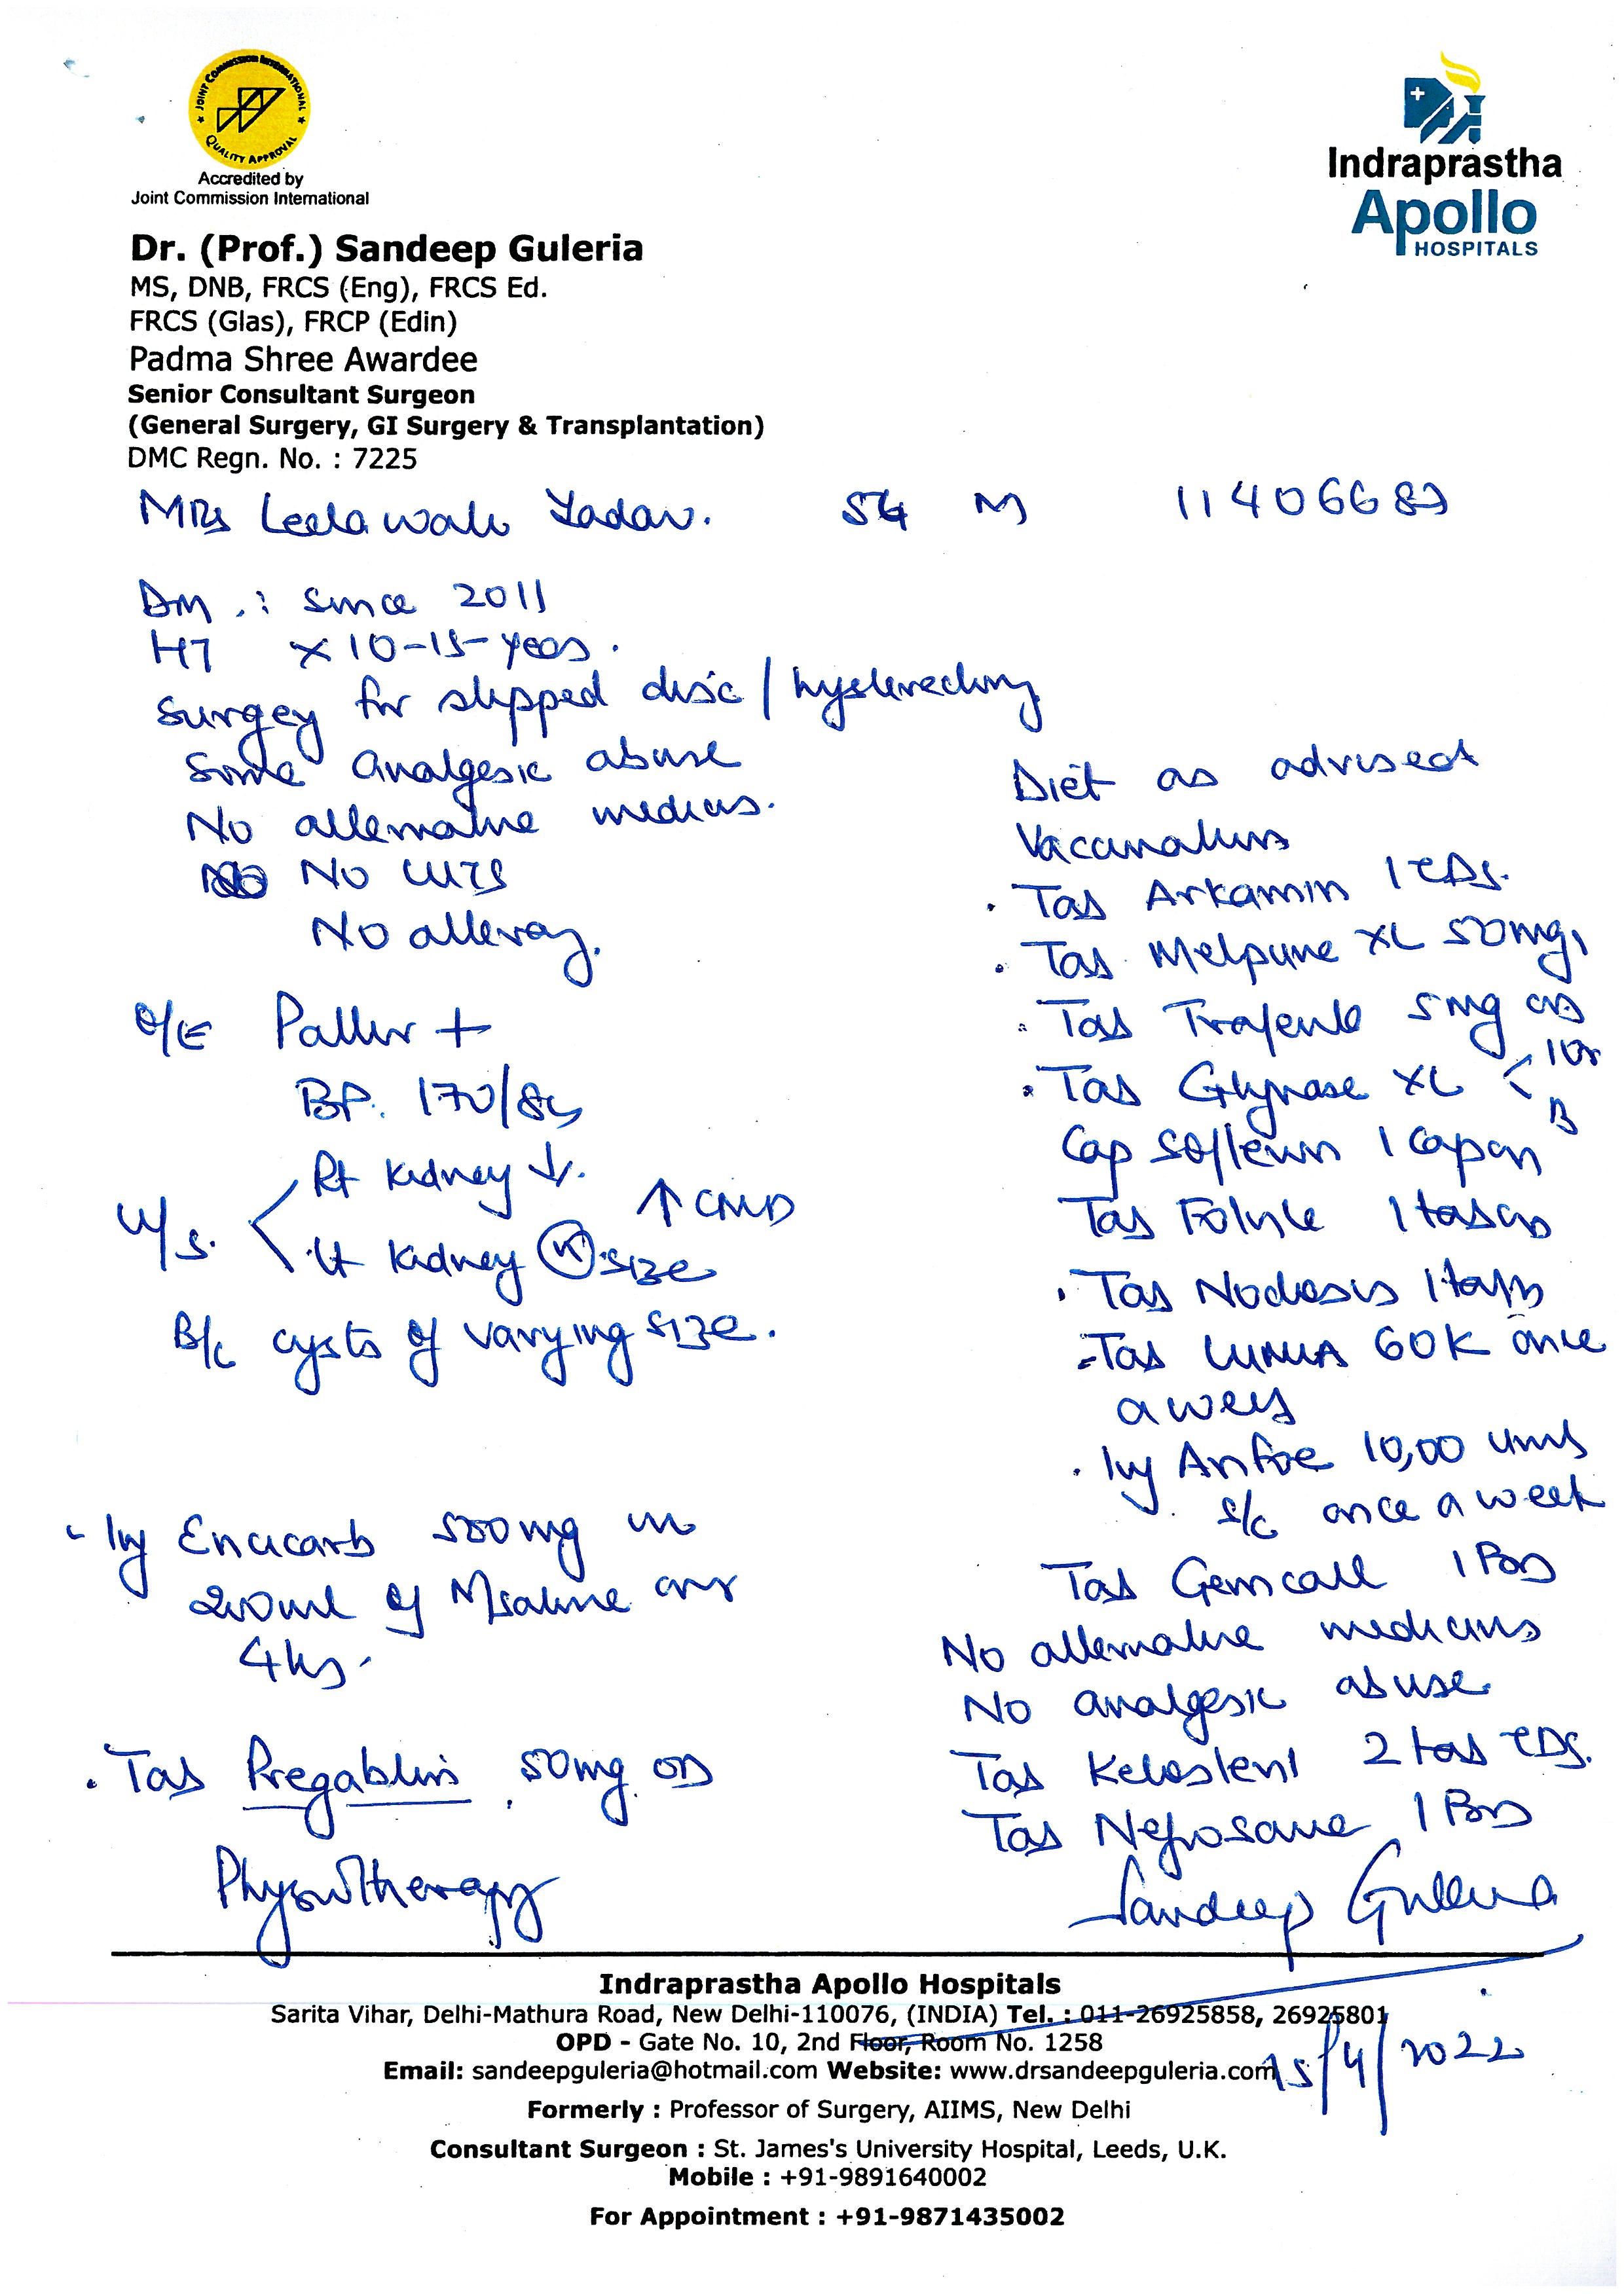 JOINT COMMISSION INTERNATIONAL
QUALITY APPROVAL
Accredited by
Joint Commission International
Indraprastha
Apollo
HOSPITALS
Dr. (Prof.) Sandeep Guleria
MS, DNB, FRCS (Eng), FRCS Ed.
FRCS (Glas), FRCP (Edin)
Padma Shree Awardee
Senior Consultant Surgeon
(General Surgery, GI Surgery & Transplantation)
DMC Regn. No. : 7225
Mrs Leelawati Yadav. 54 M 11406689
DM : Since 2011
HT x 10-15-years.
Surgey for slipped disc / hysterectomy
Some analgesic abuse
No alternative medicins.
No UTIs
No allergy.
O/E Pallor +
BP. 170/84
U/S. Rt Kidney ↓.
Lt Kidney (N) size
↑ CMD
B/L cysts of varying size.
Inj Encicarb 500mg in
200ml of N saline over
4 hrs.
Tab Pregablin 50mg OD
Physiotherapy
Diet as advised
Vaccinations
Tab Arkamin 1 TDS.
Tab XL 50mg
Tab 5mg OD
Tab Glynase XL
Cap 1 cap OD
Tab 1 tab OD
Tab Nodosis 1 tab
Tab 60K once
a week
Inj 10,00 units
s/c once a week
Tab Gemcal 1 OD
No alternative medicins
No analgesic abuse
Tab 2 tab TDS.
Tab Nefrosave 1 BD
Sandeep Guleria
15/4/2022
Indraprastha Apollo Hospitals
Sarita Vihar, Delhi-Mathura Road, New Delhi-110076, (INDIA) Tel. : 011-26925858, 26925801
OPD - Gate No. 10, 2nd Floor, Room No. 1258
Email: sandeepguleria@hotmail.com Website: www.drsandeepguleria.com
Formerly : Professor of Surgery, AIIMS, New Delhi
Consultant Surgeon : St. James's University Hospital, Leeds, U.K.
Mobile : +91-9891640002
For Appointment : +91-9871435002